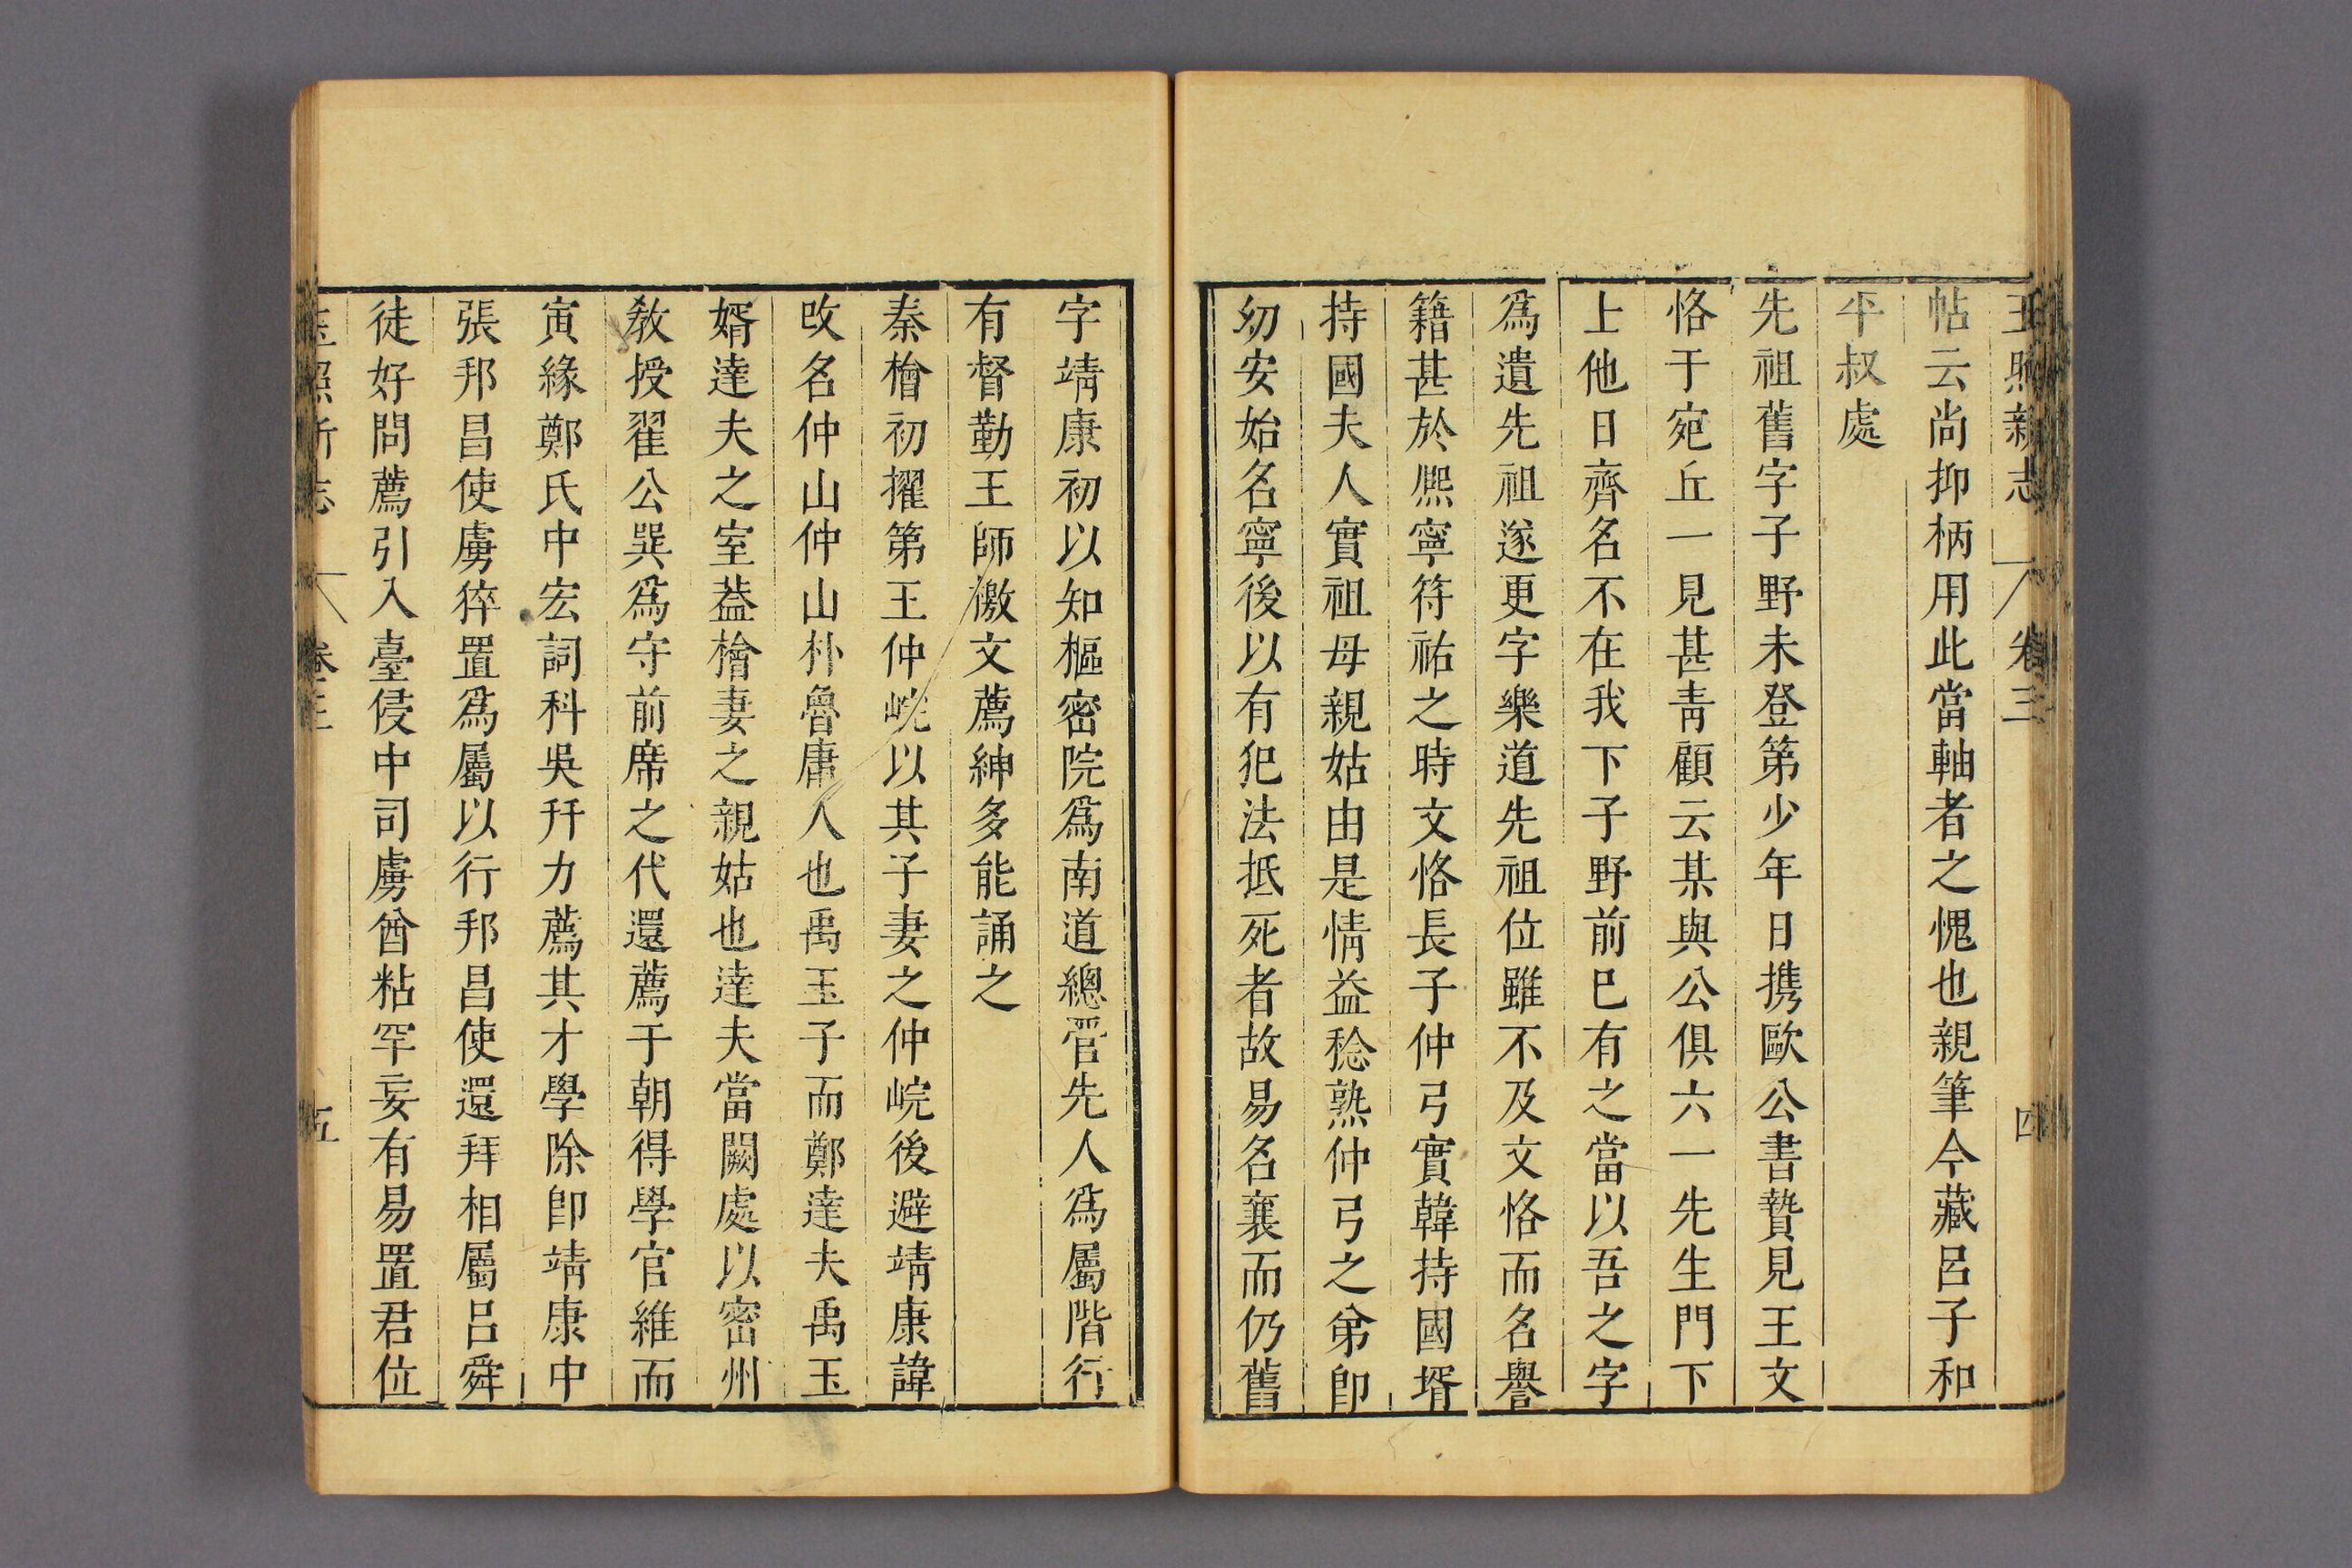 玉照新志 卷三 四
帖云尚抑柄用此當軸者之愧也親筆今藏呂子和
平叔處
先祖舊字子野未登第少年日携歐公書贄見王文
恪于宛丘一見甚青顧云某與公俱六一先生門下
上他日齊名不在我下子野前巳有之當以吾之字
爲遺先祖遂更字樂道先祖位雖不及文恪而名譽
籍甚於熈寧符祐之時文恪長子仲弓實韓持國壻
持國夫人實祖母親姑由是情益稔熟仲弓之弟卽
幼安始名寧後以有犯法抵死者故易名襄而仍舊
字靖康初以知樞密院爲南道總管先人爲屬階行
有督勤王師檄文薦紳多能誦之
秦檜初擢第王仲岏以其子妻之仲岏後避靖康諱
改名仲山仲山朴魯庸人也禹玉子而鄭達夫禹玉
婿達夫之室葢檜妻之親姑也達夫當闕處以密州
敎授翟公巽爲守前席之代還薦于朝得學官維而
寅緣鄭氏中宏詞科吳幵力薦其才學除卽靖康中
張邦昌使虜猝置爲屬以行邦昌使還拜相屬呂舜
徒好問薦引入臺侵中司虜酋粘罕妄有易置君位
玉照新志 卷三 五